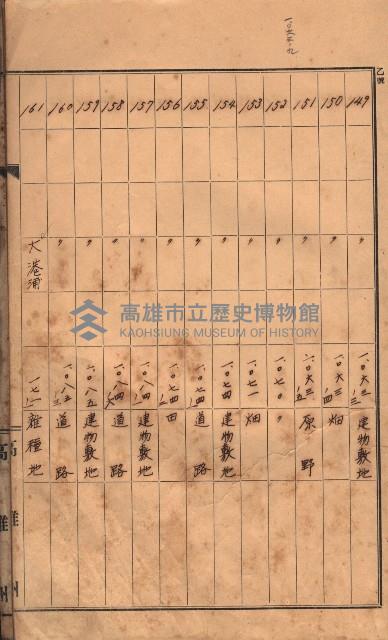 乙號
一〇六三、九
149 〃 一、〇六三ノ三 建物敷地
150 〃 一、〇六三ノ四 畑
151 〃 一、〇六三ノ五 原野
152 〃 一、〇七〇 〃
153 〃 一、〇七一 畑
154 〃 一、〇七四 建物敷地
155 〃 道路
156 〃 一、〇七四 田
157 〃 一、〇八四 建物敷地
158 〃 一、〇八四 道路
159 〃 一、〇八五 建物敷地
160 〃 一、〇八五 道路
161 大港浦 雜種地
高雄州
高雄市立歷史博物館
KAOHSIUNG MUSEUM OF HISTORY